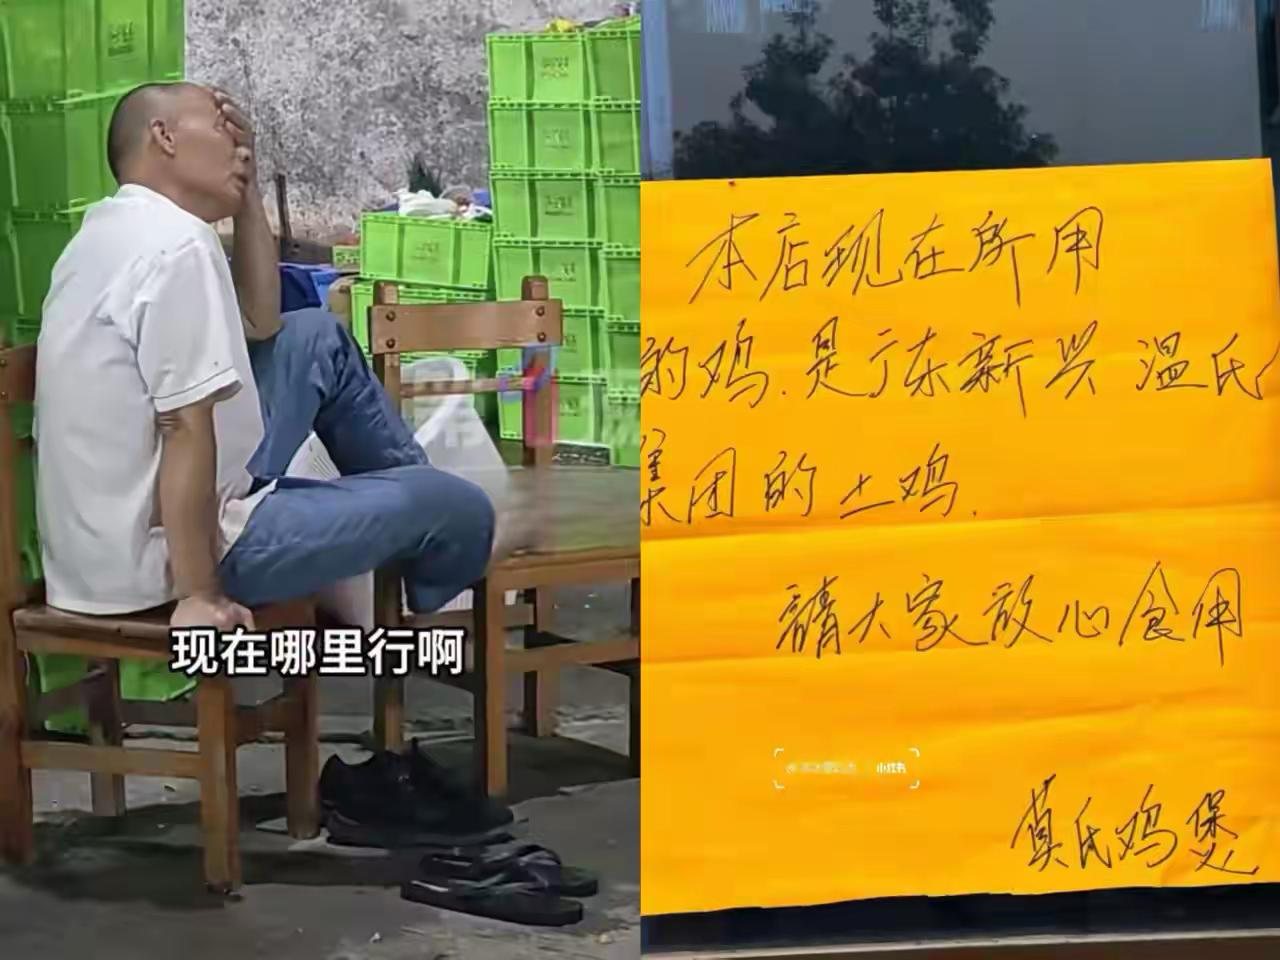 现在哪里行啊
本店现在所用
的鸡.是广东新兴温氏
集团的土鸡.
請大家放心食用
小红书
莫氏鸡煲